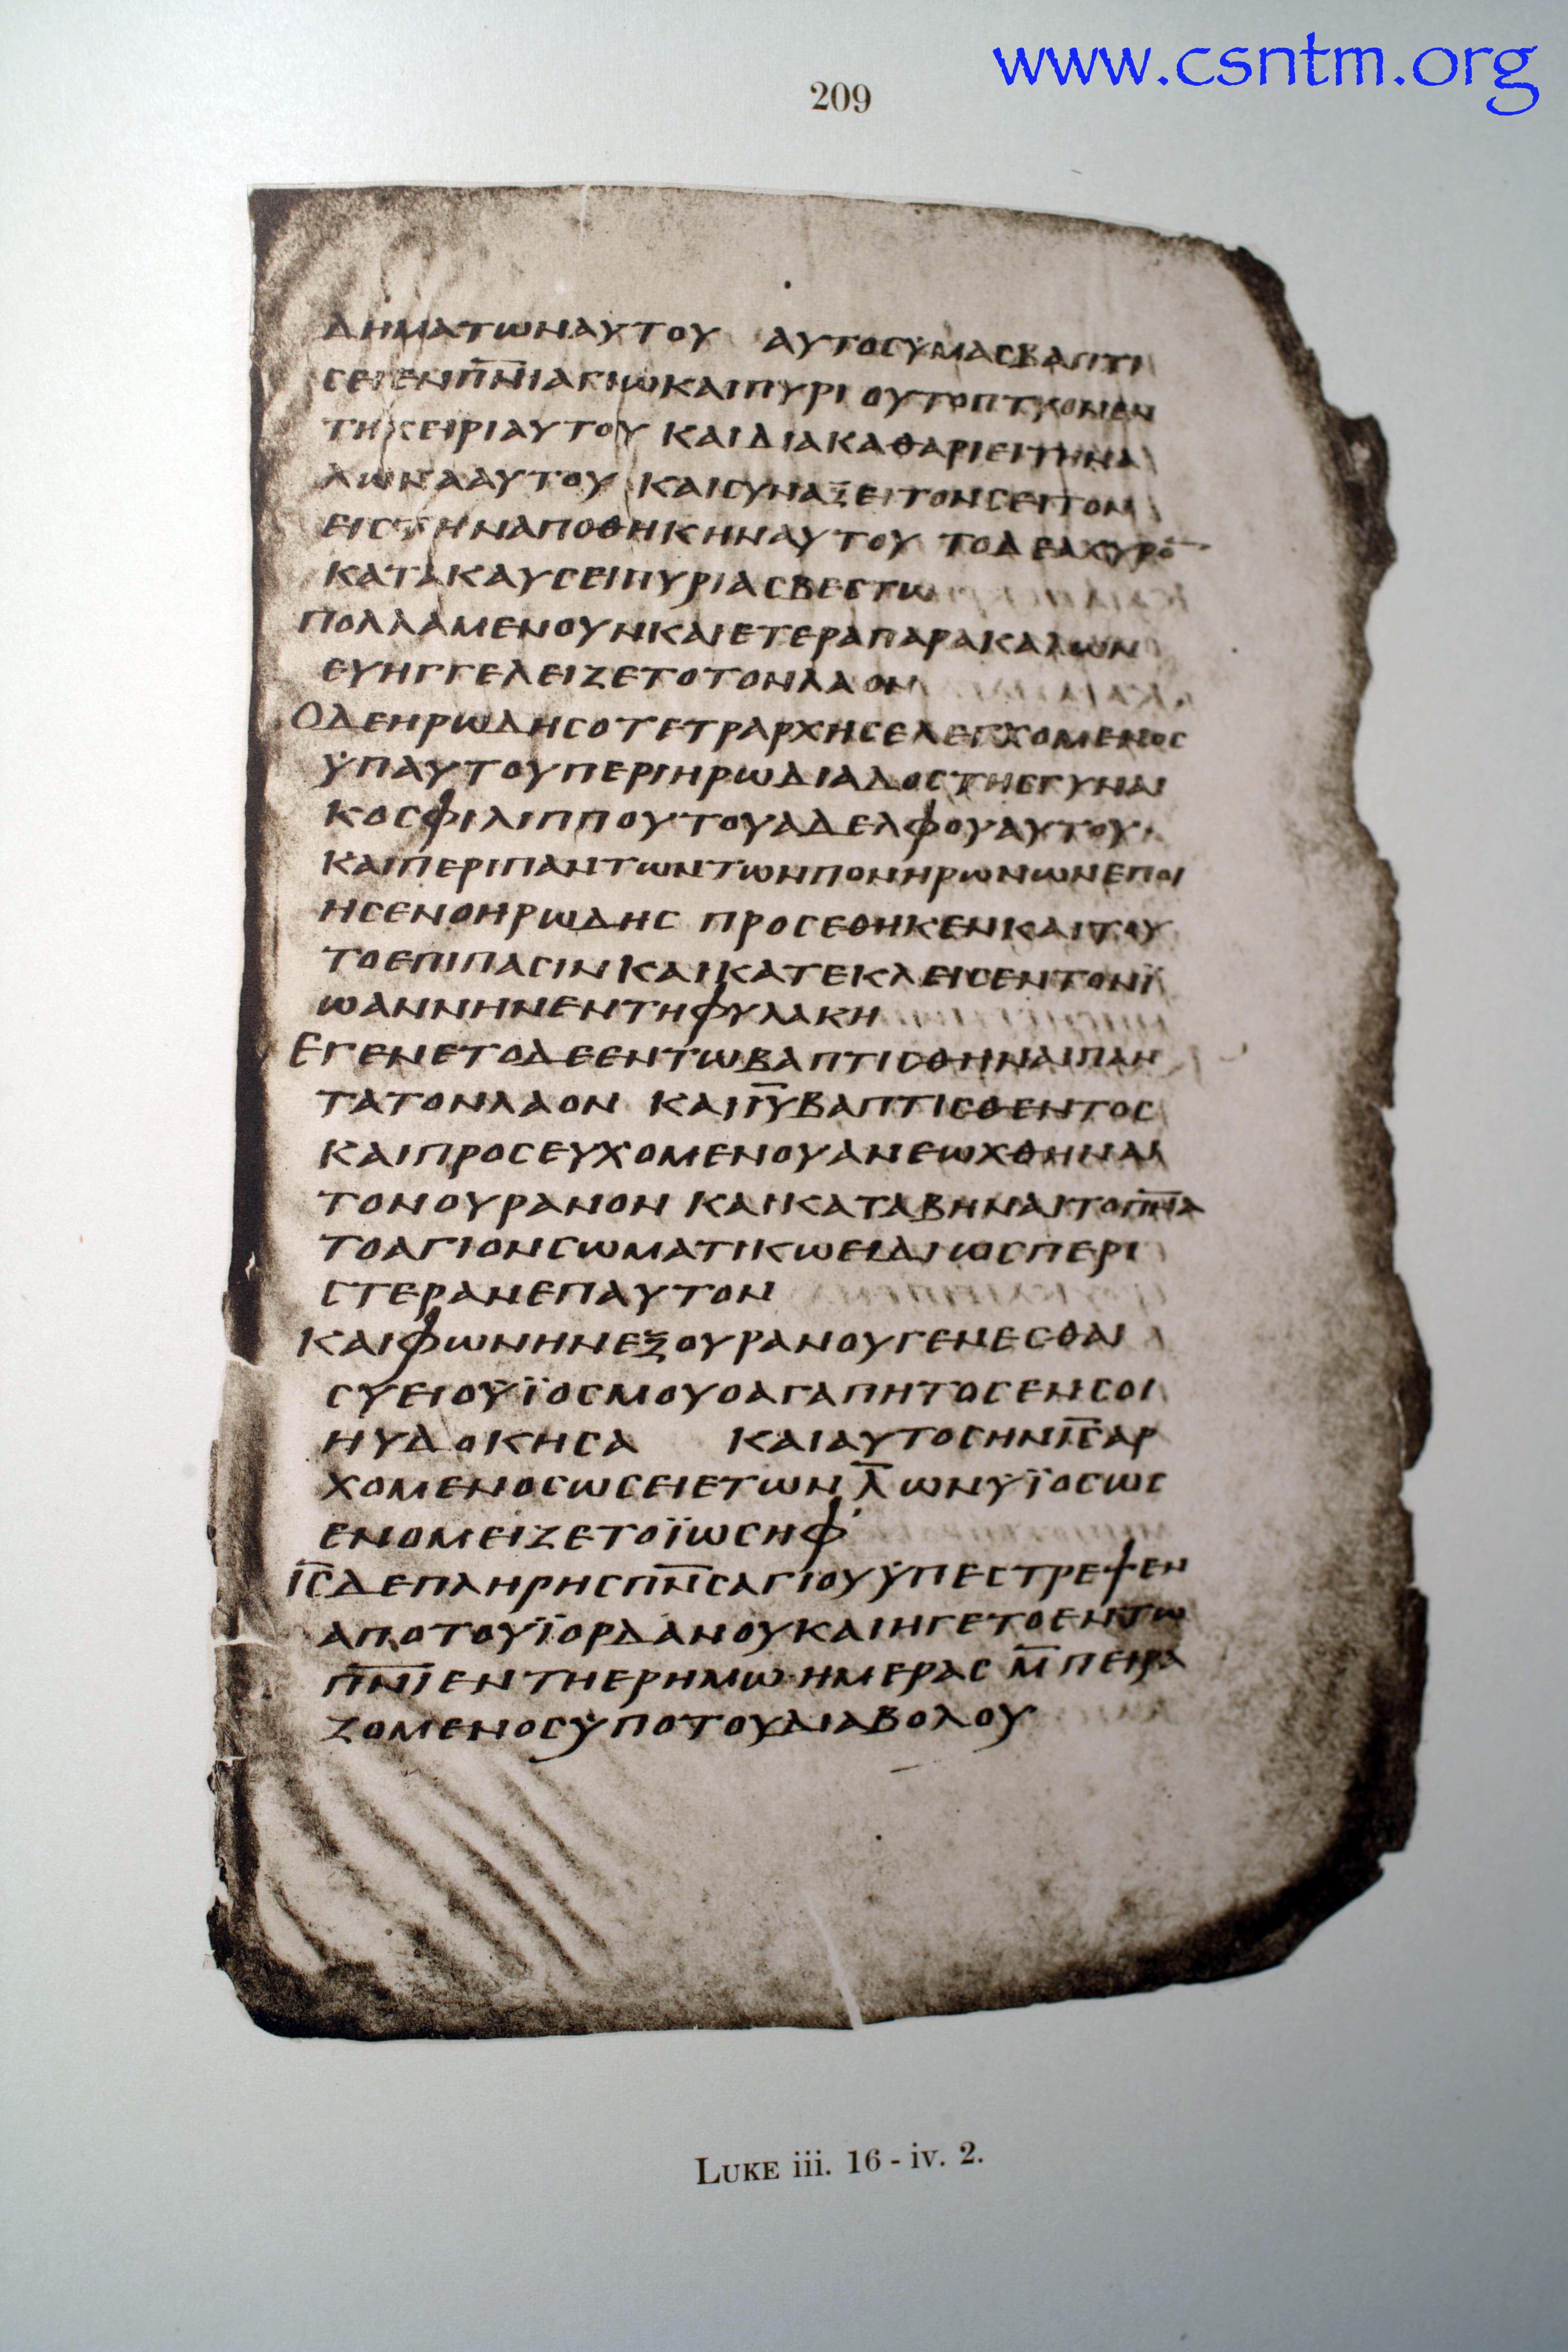 www.csntm.org
209
ΔΗΜΑΤΩΝΑΥΤΟΥ ΑΥΤΟCΥΜΑCΒΑΠΤΙ
CΕΙΕΝΠ̅Ν̅ΙΑΓΙΩΚΑΙΠΥΡΙ ΟΥΤΟΠΤΥΟΝΕΝ
ΤΗΧΕΙΡΙΑΥΤΟΥ ΚΑΙΔΙΑΚΑΘΑΡΙΕΙΤΗΝΑ
ΛΩΝΑΑΥΤΟΥ ΚΑΙCΥΝΑΞΕΙΤΟΝCΕΙΤΟΝ
ΕΙCΤΗΝΑΠΟΘΗΚΗΝΑΥΤΟΥ ΤΟΔΕΑΧΥΡΟ̅
ΚΑΤΑΚΑΥCΕΙΠΥΡΙΑCΒΕCΤΩ
ΠΟΛΛΑΜΕΝΟΥΝΚΑΙΕΤΕΡΑΠΑΡΑΚΑΛΩΝ
ΕΥΗΓΓΕΛΕΙΖΕΤΟΤΟΝΛΑΟΝ
ΟΔΕΗΡΩΔΗCΟΤΕΤΡΑΡΧΗCΕΛΕΓΧΟΜΕΝΟC
ΫΠΑΥΤΟΥΠΕΡΙΗΡΩΔΙΑΔΟCΤΗCΓΥΝΑΙ
ΚΟCΦΙΛΙΠΠΟΥΤΟΥΑΔΕΛΦΟΥΑΥΤΟΥ
ΚΑΙΠΕΡΙΠΑΝΤΩΝΤΩΝΠΟΝΗΡΩΝΩΝΕΠΟΙ
ΗCΕΝΟΗΡΩΔΗC ΠΡΟCΕΘΗΚΕΝΚΑΙΤΟΥ
ΤΟΕΠΙΠΑCΙΝΚΑΙΚΑΤΕΚΛΕΙCΕΝΤΟΝΪ
ΩΑΝΝΗΝΕΝΤΗΦΥΛΑΚΗ
ΕΓΕΝΕΤΟΔΕΕΝΤΩΒΑΠΤΙCΘΗΝΑΙΠΑΝ
ΤΑΤΟΝΛΑΟΝ ΚΑΙΙ̅Υ̅ΒΑΠΤΙCΘΕΝΤΟC
ΚΑΙΠΡΟCΕΥΧΟΜΕΝΟΥΑΝΕΩΧΘΗΝΑΙ
ΤΟΝΟΥΡΑΝΟΝ ΚΑΙΚΑΤΑΒΗΝΑΙΤΟΠ̅Ν̅Α̅
ΤΟΑΓΙΟΝCΩΜΑΤΙΚΩΕΙΔΙΩCΠΕΡΙ
CΤΕΡΑΝΕΠΑΥΤΟΝ
ΚΑΙΦΩΝΗΝΕΞΟΥΡΑΝΟΥΓΕΝΕCΘΑΙ
CΥΕΙΟΫΪΟCΜΟΥΟΑΓΑΠΗΤΟCΕΝCΟΙ
ΗΥΔΟΚΗCΑ ΚΑΙΑΥΤΟCΗΝΙ̅C̅ΑΡ
ΧΟΜΕΝΟCΩCΕΙΕΤΩΝΛ̅ΩΝΫΪΟCΩC
ΕΝΟΜΕΙΖΕΤΟΪΩCΗΦ
Ι̅C̅ΔΕΠΛΗΡΗCΠ̅Ν̅C̅ΑΓΙΟΥΫΠΕCΤΡΕΨΕΝ
ΑΠΟΤΟΥΪΟΡΔΑΝΟΥΚΑΙΗΓΕΤΟΕΝΤΩ
Π̅Ν̅Ι̅ΕΝΤΗΕΡΗΜΩΗΜΕΡΑCΜ̅ΠΕΙΡΑ
ΖΟΜΕΝΟCΫΠΟΤΟΥΔΙΑΒΟΛΟΥ
LUKE iii. 16 - iv. 2.